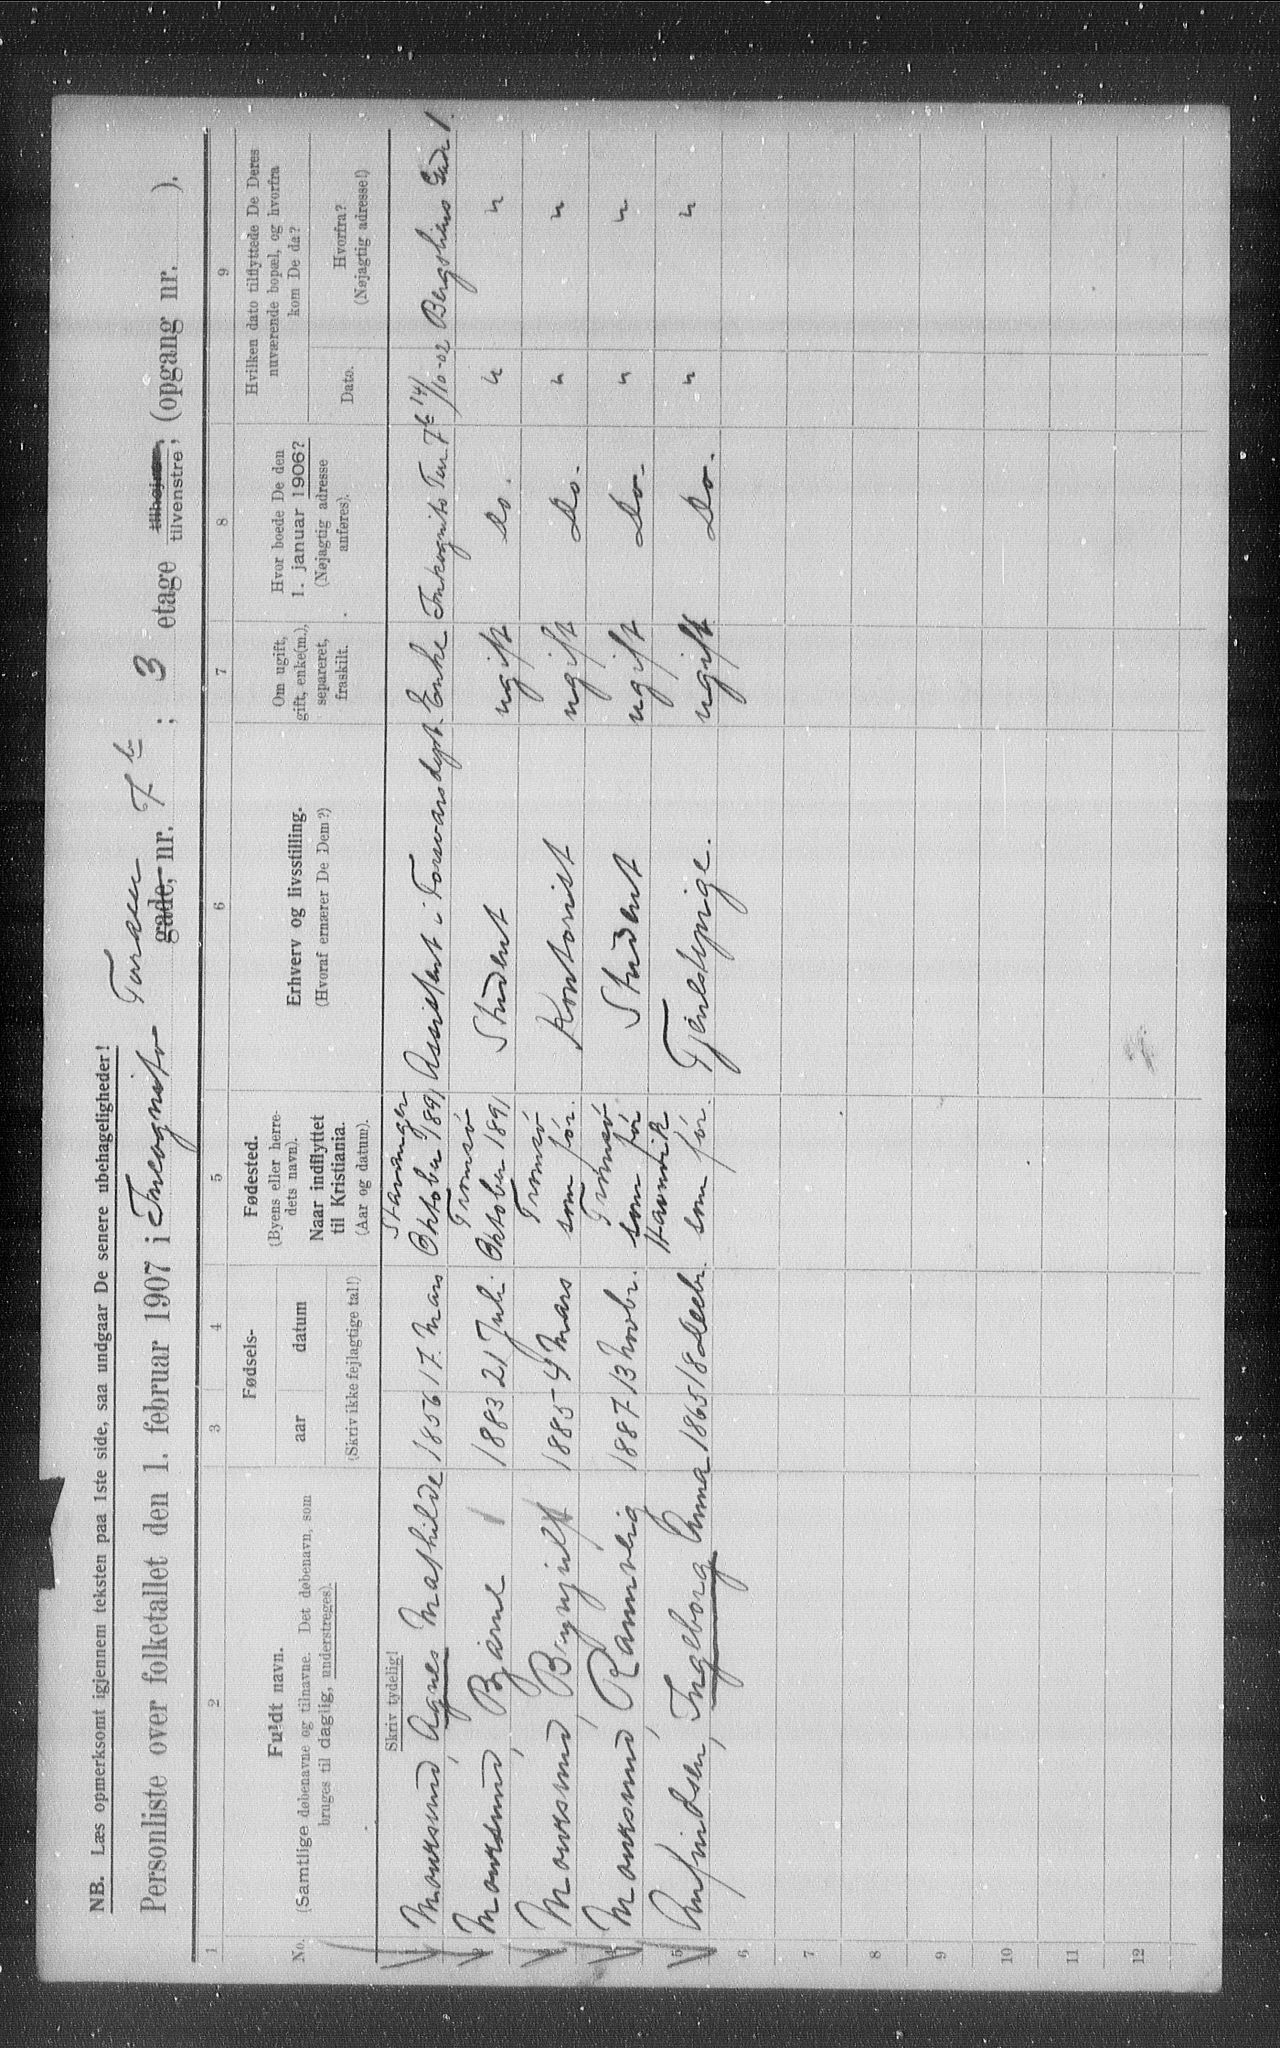 NB. Læs opmerksomt igjennem teksten paa 1ste side, saa undgaar De senere ubehageligheder!
Personliste over folketallet den 1. februar 1907 i Incognito Terasse gade, nr. 7 b ; 3 etage tilhøjre, tilvenstre, (opgang nr. ).
1 2 3 4 5 6 7 8 9
No.
Fuldt navn.
(Samtlige døbenavne og tilnavne. Det døbenavn, som
bruges til daglig, understreges).
Fødsels-
aar datum
(Skriv ikke fejlagtige tal!)
Fødested.
(Byens eller herre-
dets navn).
Naar indflyttet
til Kristiania.
(Aar og datum).
Erhverv og livsstilling.
(Hvoraf ernærer De Dem?)
Om ugift,
gift, enke(m.),
separeret,
fraskilt.
Hvor boede De den
1. januar 1906?
(Nøjagtig adresse
anføres).
Hvilken dato tilflyttede De Deres
nuværende bopæl, og hvorfra
kom De da?
Dato.
Hvorfra?
(Nøjagtig adresse!)
Skriv tydelig!
Agnes Mathilde 1856 17. Mars Stavanger Oktober 1891 Assistent i Forsvarsdept. Enke Inkognito Terr. 7b 14/10-02 Bergsliens Gade 1.
2 Bjarne 1883 21 Juli Tromsö Oktober 1891 Student ugift Do. " "
Brynjulf 1885 4 Mars Tromsö som för. Kontorist ugift Do. " "
Rannveig 1887 13 Novbr. Tromsö som för Student ugift Do. " "
5 Arnfindsen, Ingeborg Anna 1865 18 Decbr. som för. Tjenestepige. ugift Do. " "
6
7
8
9
10
11
12